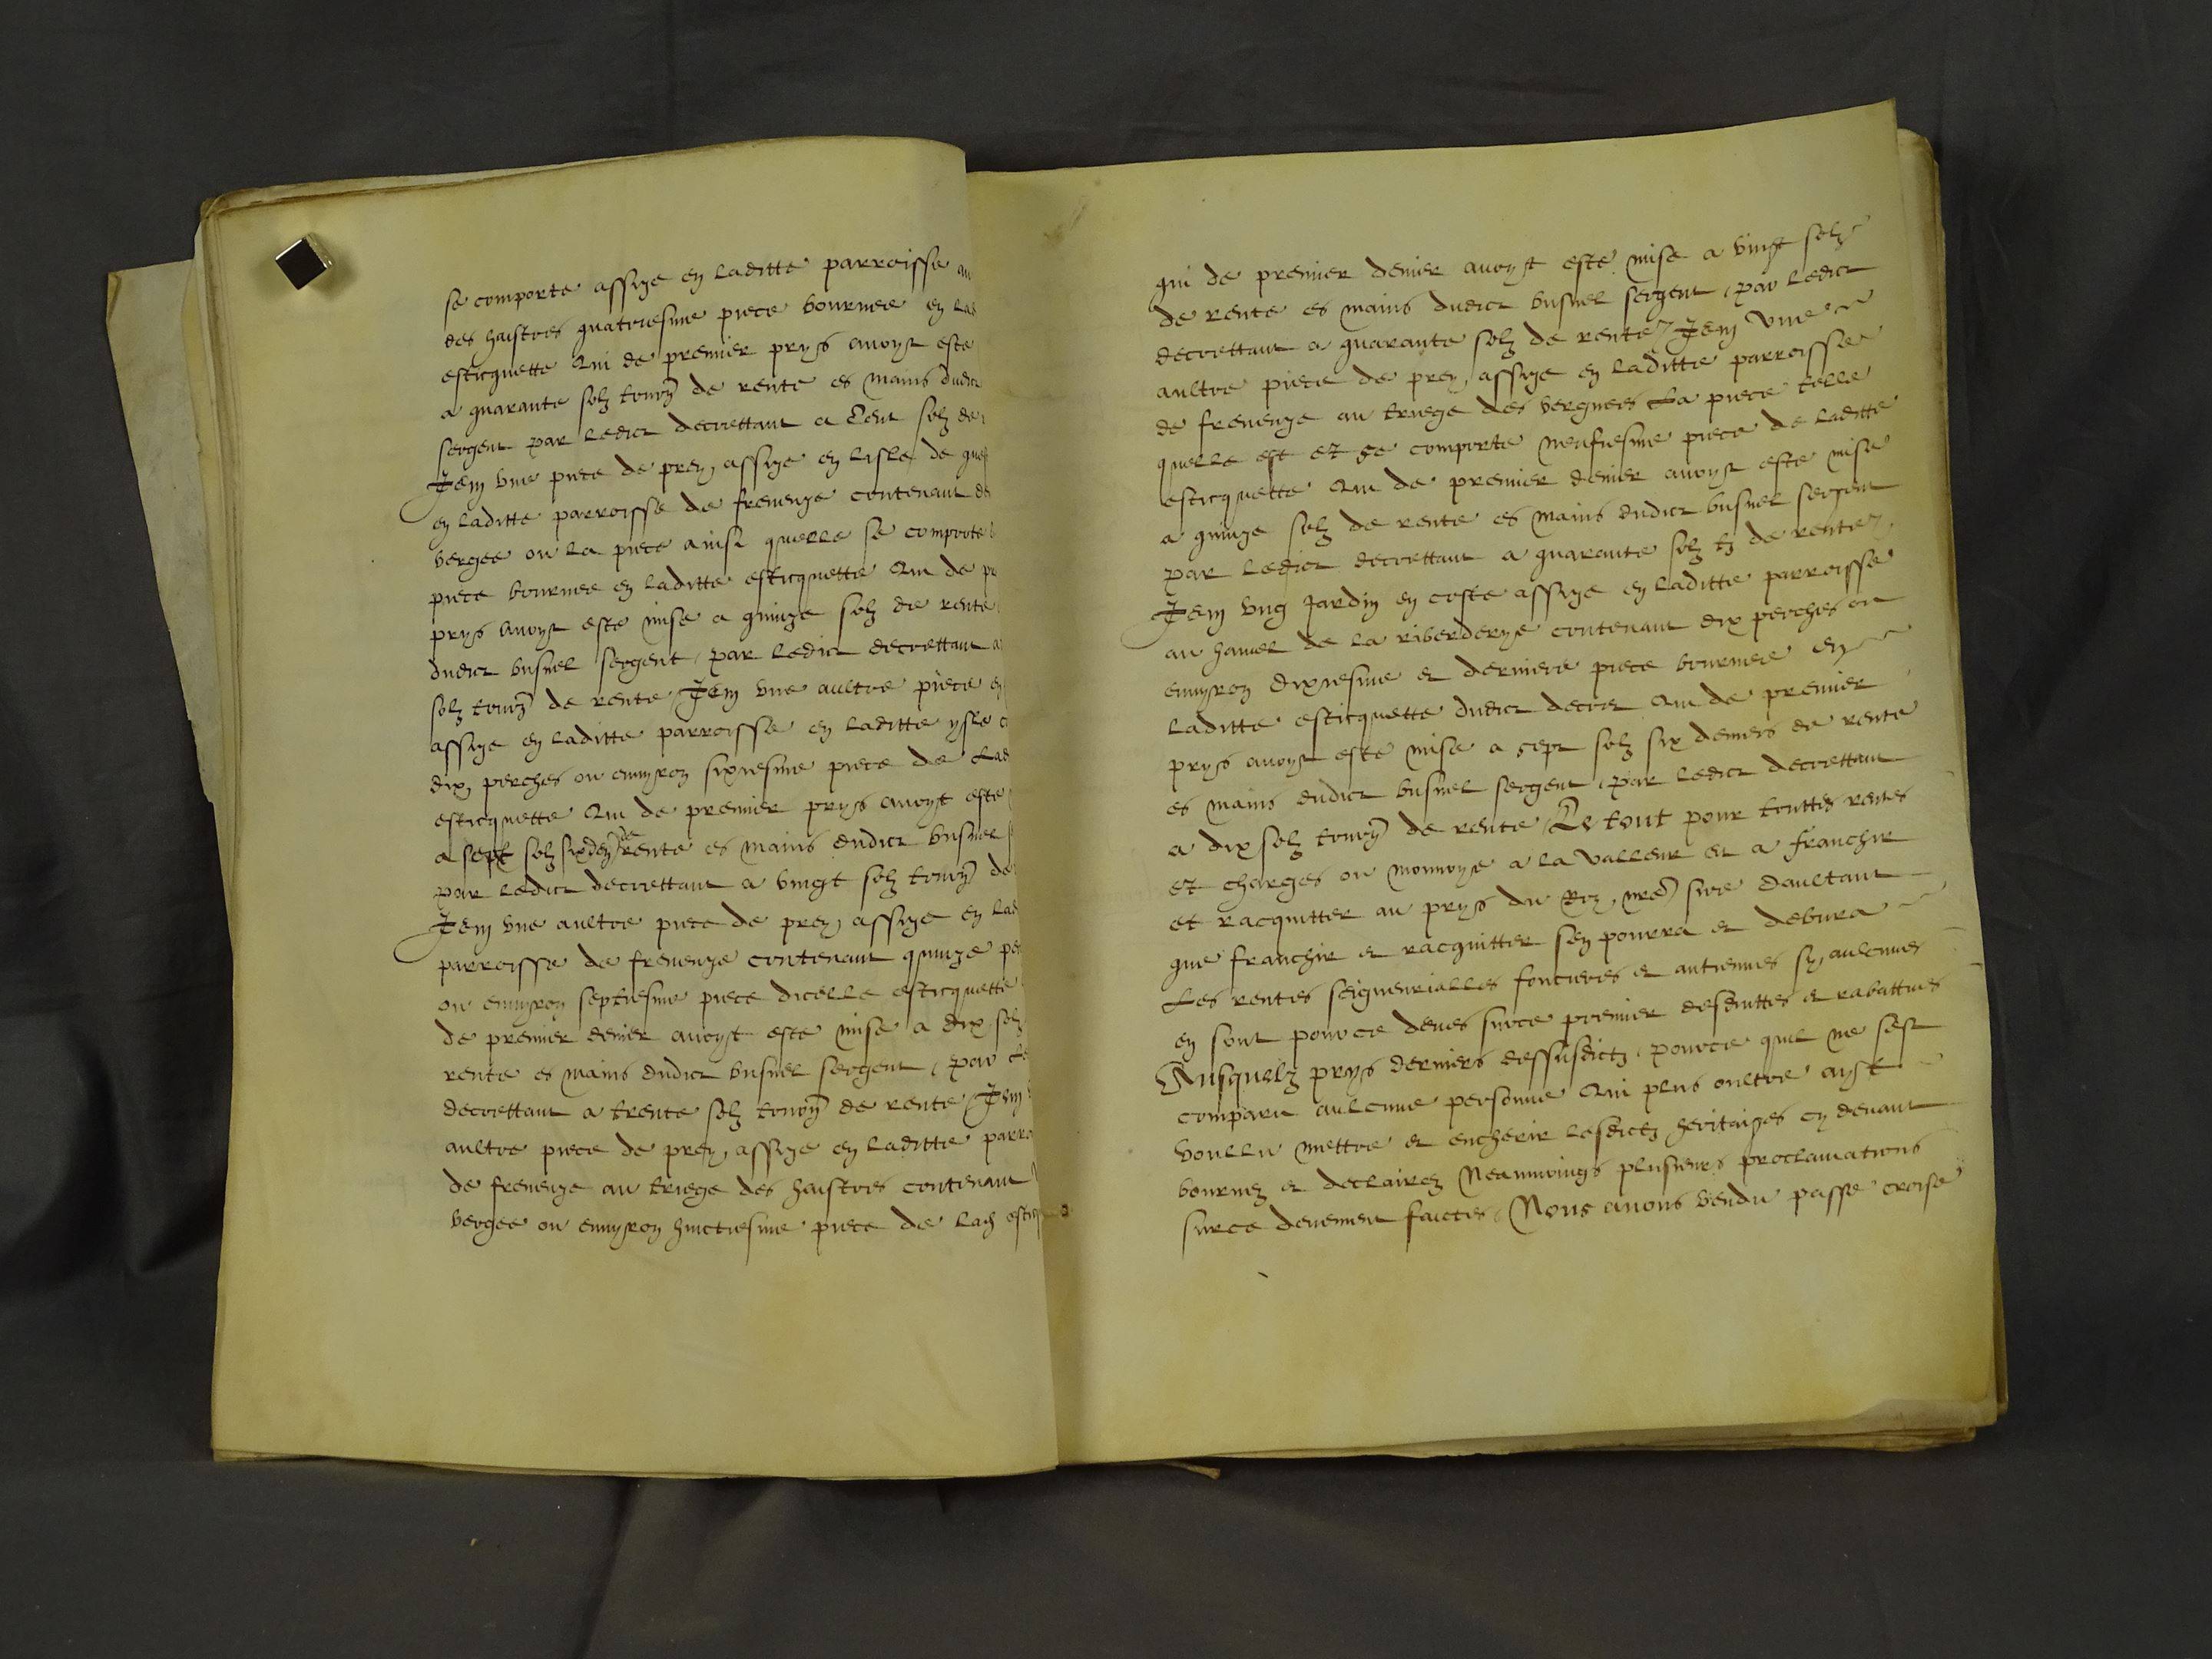 se comporte assize en laditte parroisse au
des haistres quatriesme piece bournee en lad
esticquette Qui de premier prys avoyt este
a quarante solz tourn de rente es mains dudict
sergent par ledict decrettant a Cent solz de r
Item une piece de prey assize en lisle de
en laditte parroisse de freneuze contenant de
vergee ou la piece ainsi quelle se comporte
piece bournee en laditte esticquette Qui de p
prys avoyt este mise a quinze solz de rente
dudict busnel sergent par ledict decrettant a
solz tourn de rente Item une aultre piece en
assize en laditte parroisse en laditte ysle c
dix perches ou environ sixiesme piece de Lad
esticquette Qui de premier prys avoyt este
a sept solz six den de rente es mains dudict busnel s
par ledict decrettant a vingt solz tourn de
Item une aultre piece de prey assize en lad
parroisse de freneuze contenant quinze per
ou environ septiesme piece dicelle esticquette
de premier denier avoyt este mise a dix solz
rente es mains dudict busnel sergent par le
decrettant a trente solz tourn de rente Item
aultre piece de prey assize en laditte parro
de freneuze au triege des haistres contenant
vergee ou environ huictiesme piece de lad estic
qui de premier denier avoyt este mise a vingt solz
de rente es mains dudict busnel sergent par ledict
decrettant a quarante solz de rente Item une
aultre piece de prey assize en laditte parroisse
de freneuze au triege des vergnees La piece telle
quelle est et se comporte neufiesme piece de laditte
esticquette Qui de premier denier avoyt este mise
a quinze solz de rente es mains dudict busnel sergent
par ledict decrettant a quarante solz tz de rente
Item ung jardin en coste assize en laditte parroisse
au hamel de la riberderye contenant dix perches ou
environ dixiesme et derniere piece bournee en
laditte esticquette dudict decret Qui de premier
prys avoyt este mise a sept solz six deniers de rente
es mains dudict busnel sergent par ledict decrettant
a dix solz tourn de rente Le tout pour touttes rentes
et charges ou monnoye a la valleur et a franchir
et racquitter au prys du Roy nre sire Daultant
que franchir et racquitter sen pourra et debvra
Les rentes seigneurialles foncieres et antiennes sy aulcunes
en sont pource deues surce premier desduittes et rabattues
Ausquelz prys derniers dessusdictz pource quil ne sest
comparu aulcune personne Qui plus oultre ayt
voullu mettre et encherir lesdictz heritaiges cy devant
bournez et declairez Neanmoings plusieurs proclamations
surce deuement faictes Nous avons vendu passe croise